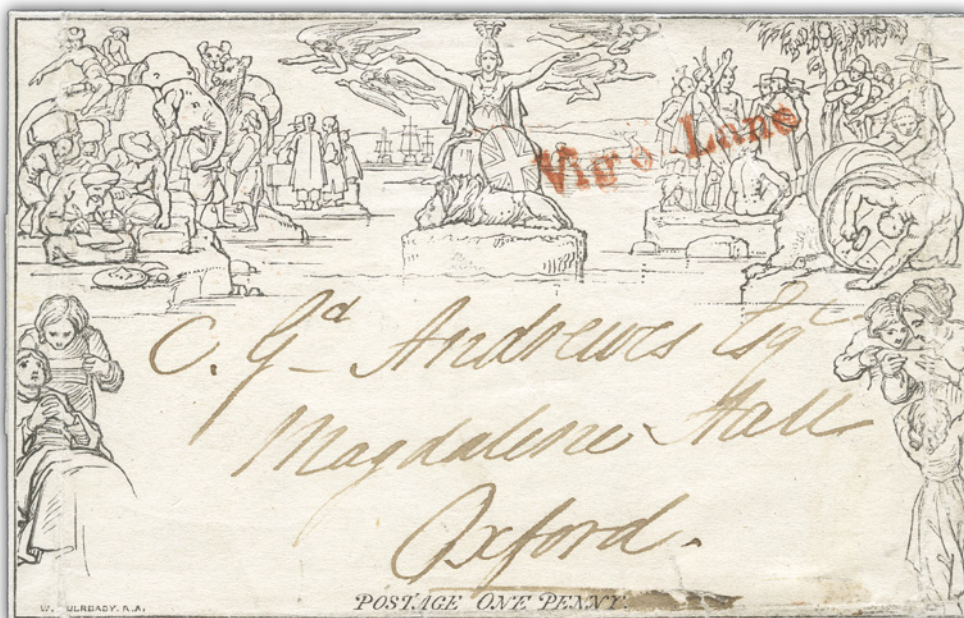 Vigo Lane
C. Gd Andrewes Esqre
Magdalene Hall
Oxford.
W. MULREADY. R.A.
POSTAGE ONE PENNY.